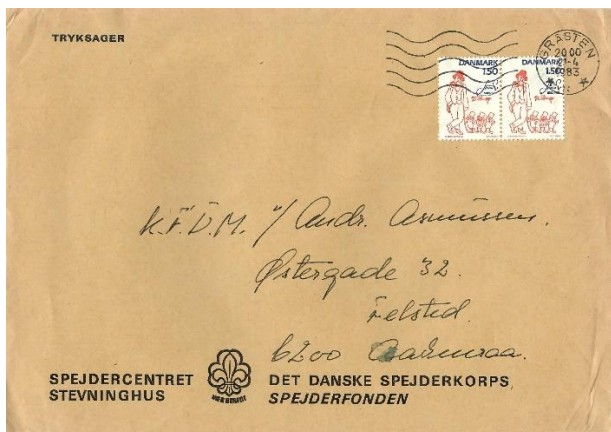 TRYKSAGER
GRÅSTEN
20.00
21-4
1983
DANMARK
150
DANMARK
150
K.F.U.M. v/ Andr. Asmussen.
Østergade 32.
Felsted.
6200 Aabenraa.
SPEJDERCENTRET
STEVNINGHUS
VÆR BEREDT
DET DANSKE SPEJDERKORPS
SPEJDERFONDEN